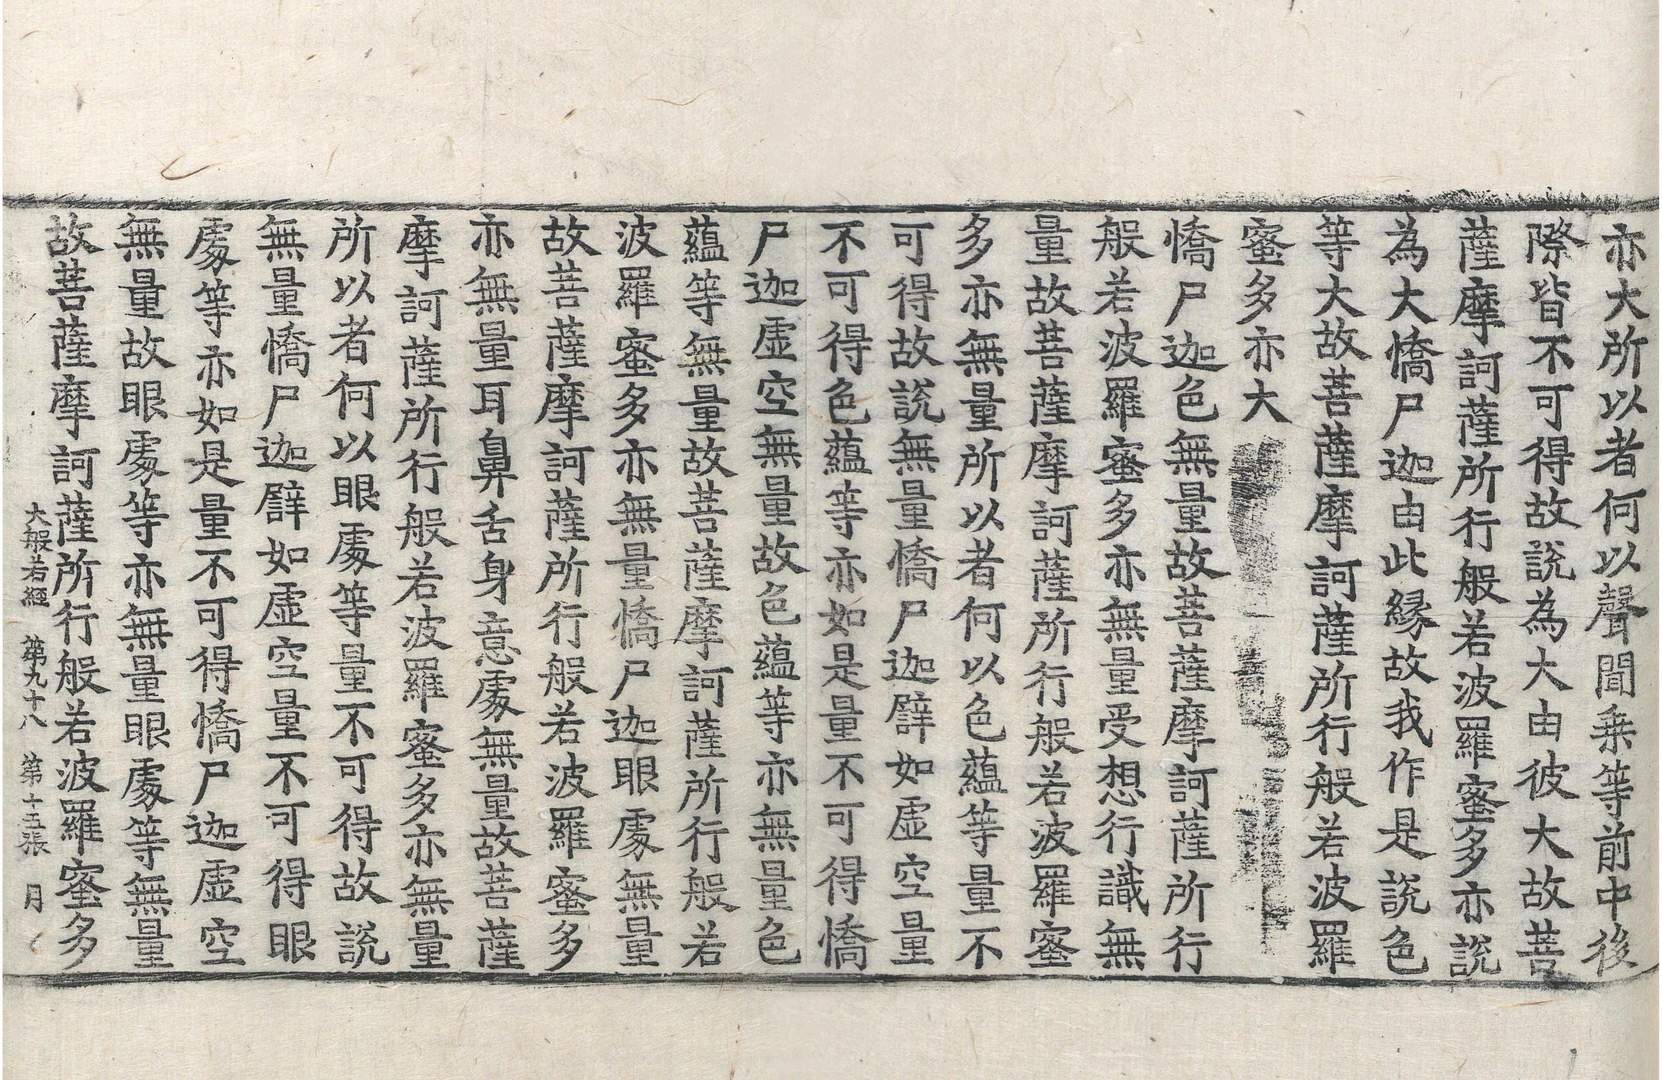 亦大所以者何以聲聞乗等前中後
際皆不可得故說為大由彼大故菩
薩摩訶薩所行般若波羅蜜多亦說
為大憍尸迦由此縁故我作是說色
等大故菩薩摩訶薩所行般若波羅
蜜多亦大
憍尸迦色無量故菩薩摩訶薩所行
般若波羅蜜多亦無量受想行識無
量故菩薩摩訶薩所行般若波羅蜜
多亦無量所以者何以色蘊等量不
可得故說無量憍尸迦譬如虛空量
不可得色蘊等亦如是量不可得憍
尸迦虛空無量故色蘊等亦無量色
蘊等無量故菩薩摩訶薩所行般若
波羅蜜多亦無量憍尸迦眼處無量
故菩薩摩訶薩所行般若波羅蜜多
亦無量耳鼻舌身意處無量故菩薩
摩訶薩所行般若波羅蜜多亦無量
所以者何以眼處等量不可得故說
無量憍尸迦譬如虛空量不可得眼
處等亦如是量不可得憍尸迦虛空
無量故眼處等亦無量眼處等無量
故菩薩摩訶薩所行般若波羅蜜多
大般若經 第九十八 第十五張 月